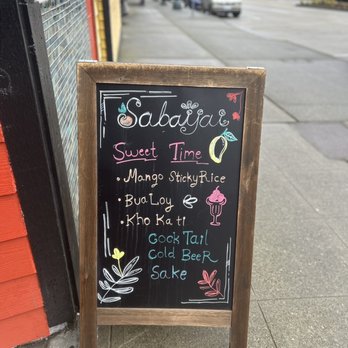 Sabaijai
Sweet Time
• Mango StickyRice
• BuaLoy
• Kho Ka ti
Cock Tail
Cold BeeR
Sake